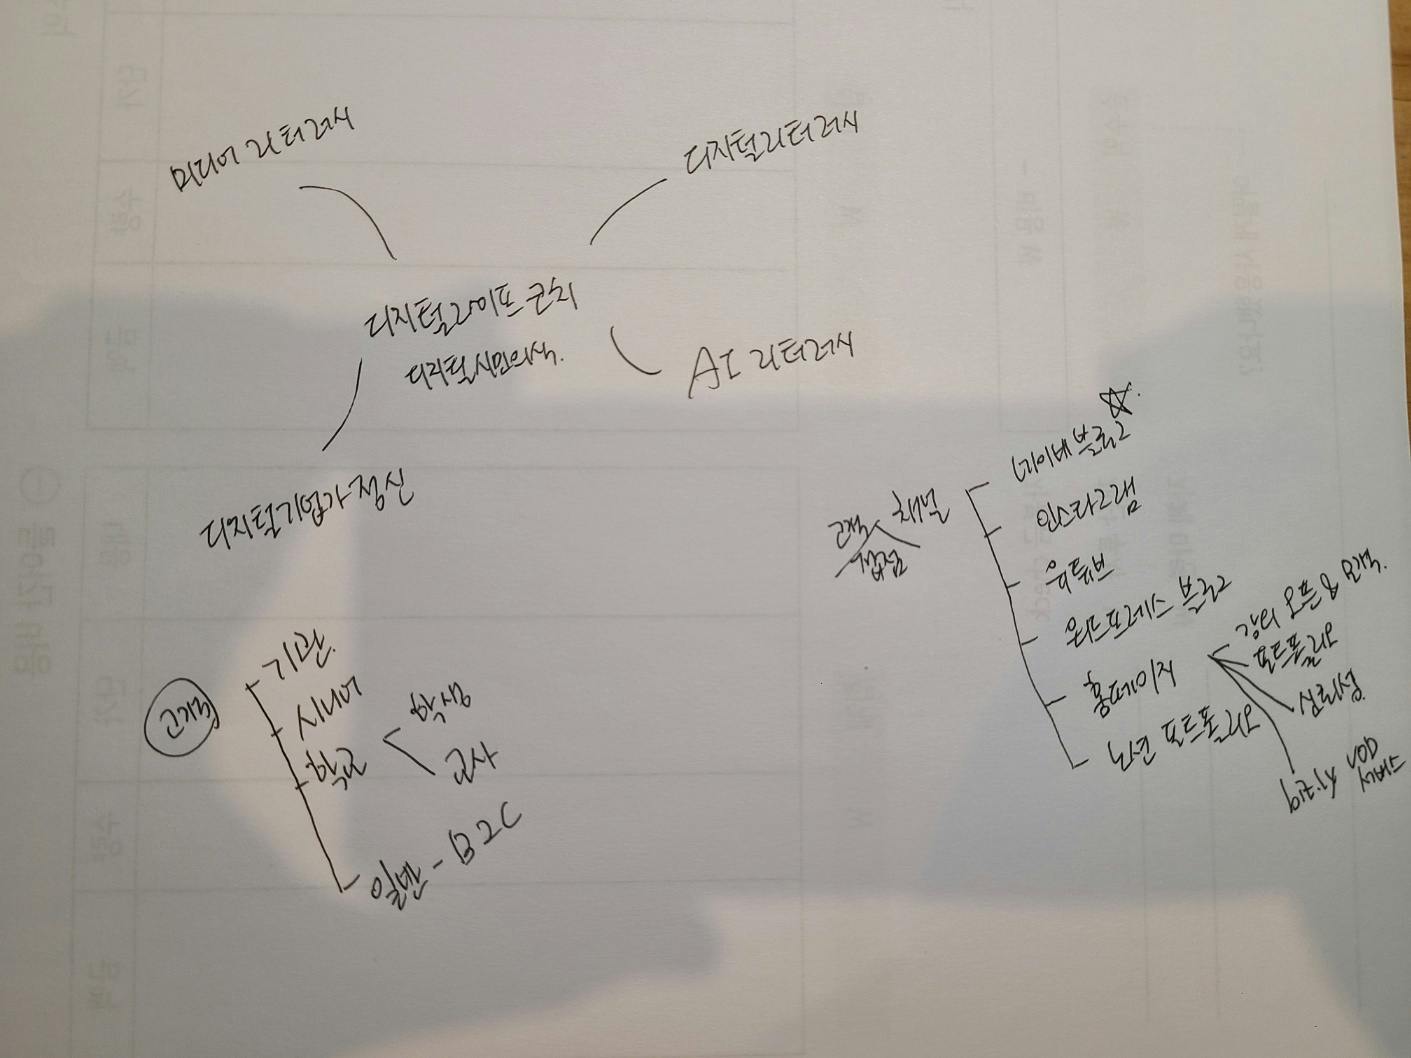 미디어 리터러시
디지털리터러시
디지털라이프 코치
디지털시민의식.
AI 리터러시
디지털기업가정신
고객
기관
시니어
학교
학생
교사
일반 - B2C
고객
접점
채널
네이버 블로그
인스타그램
유튜브
워드프레스 블로그
홈페이지
강의 오픈 & 모객.
포트폴리오
심리성
VOD
서비스
노션 포트폴리오